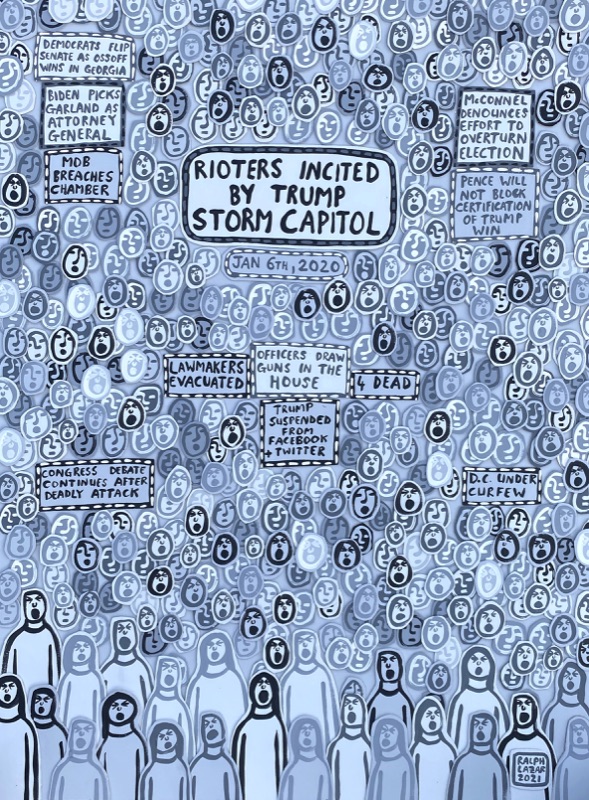 DEMOCRATS FLIP
SENATE AS OSSOFF
WINS IN GEORGIA
BIDEN PICKS
GARLAND AS
ATTORNEY
GENERAL
MOB
BREACHES
CHAMBER
RIOTERS INCITED
BY TRUMP
STORM CAPITOL
JAN 6TH, 2020
McCONNEL
DENOUNCES
EFFORT TO
OVERTURN
ELECTION
PENCE WILL
NOT BLOCK
CERTIFICATION
OF TRUMP
WIN
LAWMAKERS
EVACUATED
OFFICERS DRAW
GUNS IN THE
HOUSE
4 DEAD
TRUMP
SUSPENDED
FROM
FACEBOOK
+ TWITTER
CONGRESS DEBATE
CONTINUES AFTER
DEADLY ATTACK
D.C. UNDER
CURFEW
RALPH
LAZAR
2021